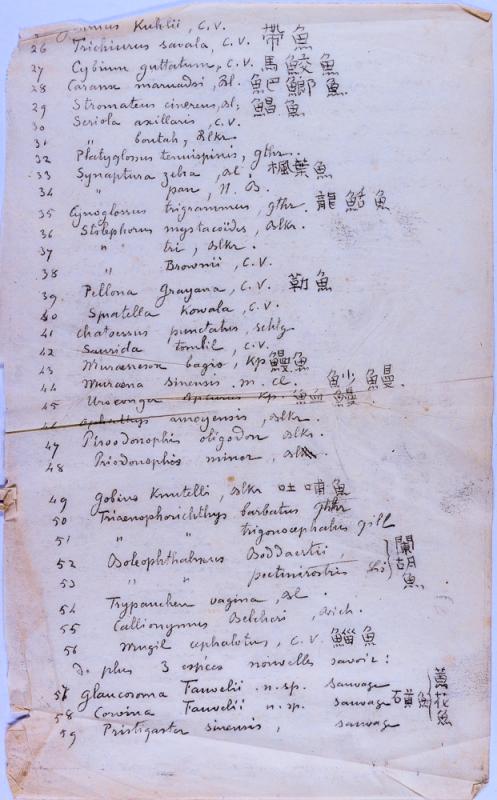 Kuhlii, C.V.
26 Trichiurus savala, C.V. 帶魚
27 Cybium guttatum, C.V. 馬鮫魚
28 Caranx maruadsi, Bl. 魬鯽魚
29 Stromateus cinereus, Bl; 鯧魚
30 Seriola axillaris, C.V.
31 " boutah, Blkr
32 Platyglossus tenuispinis, gthr.
33 Synaptura zebra, Bl. 楓葉魚
34 " pan, H. B.
35 Cynoglossus trigrammus, gthr. 龍鮚魚
36 Stolephorus mystacoïdes, Blkr.
37 " tri, Blkr.
38 " Brownii, C.V.
39 Pellona Grayana, C.V. 勒魚
40 Spratella Kowala, C.V.
41 Chatoessus punctatus, schlg
42 Saurida tombil, C.V.
43 Muraenesox bagio, Kp 鰻魚
44 Muraena sinensis. m. cl. 魦鰻.
45 Uroconger Kp. 鰻
46 amoyensis, Blkr.
47 Pisodonophis oligodon Blkr.
48 Pisodonophis minor, Blkr
49 Gobius Knutelli, Blkr 吐哺魚
50 Triaenophorichthys barbatus gthr
51 " " trigonocephalus gill
52 Boleophthalmus Boddaertii,
53 " " pectinirostris Li } 闌胡魚
54 Trypauchen vagina, Bl.
55 Callionymus Belcheri, Rich.
56 Mugil cephalotus, C.V. 鯔魚
de plus 3 espèces nouvelles savoir:
57 Glaucosoma Fauvelii n.sp. sauvage
58 Corvina Fauvelii n.sp. sauvage 磺魚 黃花魚
59 Pristigaster sinensis, sauvage